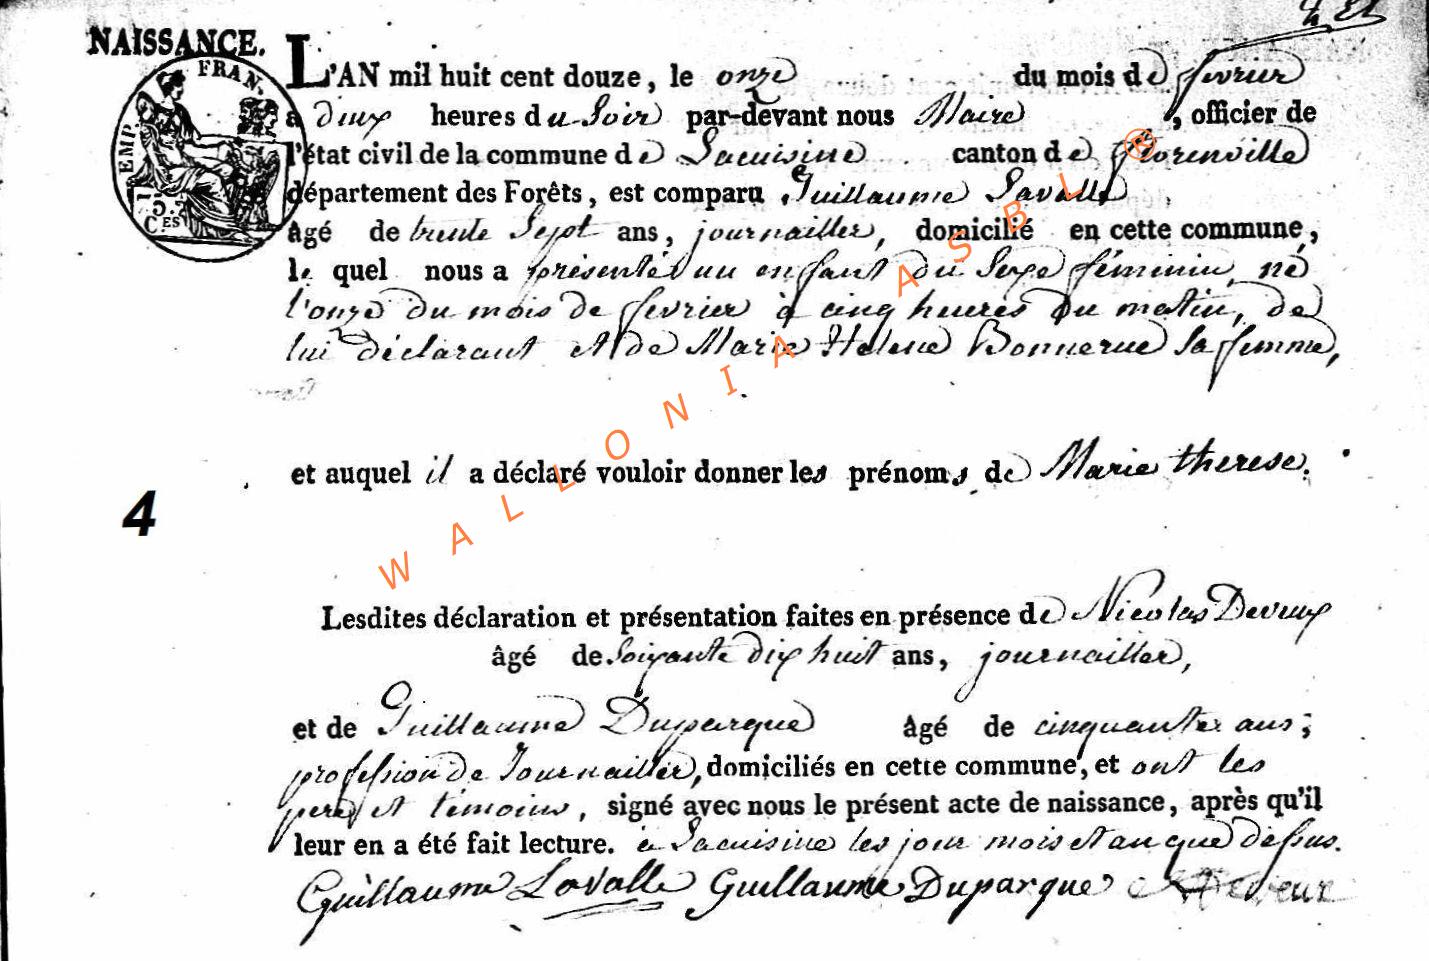 NAISSANCE.
L'AN mil huit cent douze, le onze du mois de fevrier
a deux heures du Soir par-devant nous Maire, officier de
l'état civil de la commune de Lacuisine canton de florenville
département des Forêts, est comparu Guillaume Lavalle,
âgé de trente Sept ans, journailler, domicilié en cette commune,
le quel nous a présenté un enfant du Sexe féminin, né
l'onze du mois de fevrier à cinq heures du matin, de
lui déclarant et de Marie Helene Bonnerue Sa femme,
et auquel il a déclaré vouloir donner les prénoms de Marie therese.
4
Lesdites déclaration et présentation faites en présence de Nicolas Deveux
âgé de Soixante dix huit ans, journailler,
et de Guillaume Duparque âgé de cinquante ans;
profession de Journailler, domiciliés en cette commune, et ont les
pere et témoins, signé avec nous le présent acte de naissance, après qu'il
leur en a été fait lecture. à Lacuisine les jour mois et an que dessus.
Guillaume Lavalle Guillaume Duparque
FRAN.
EMP.
75.
CES
WALLONIA ASBL ®